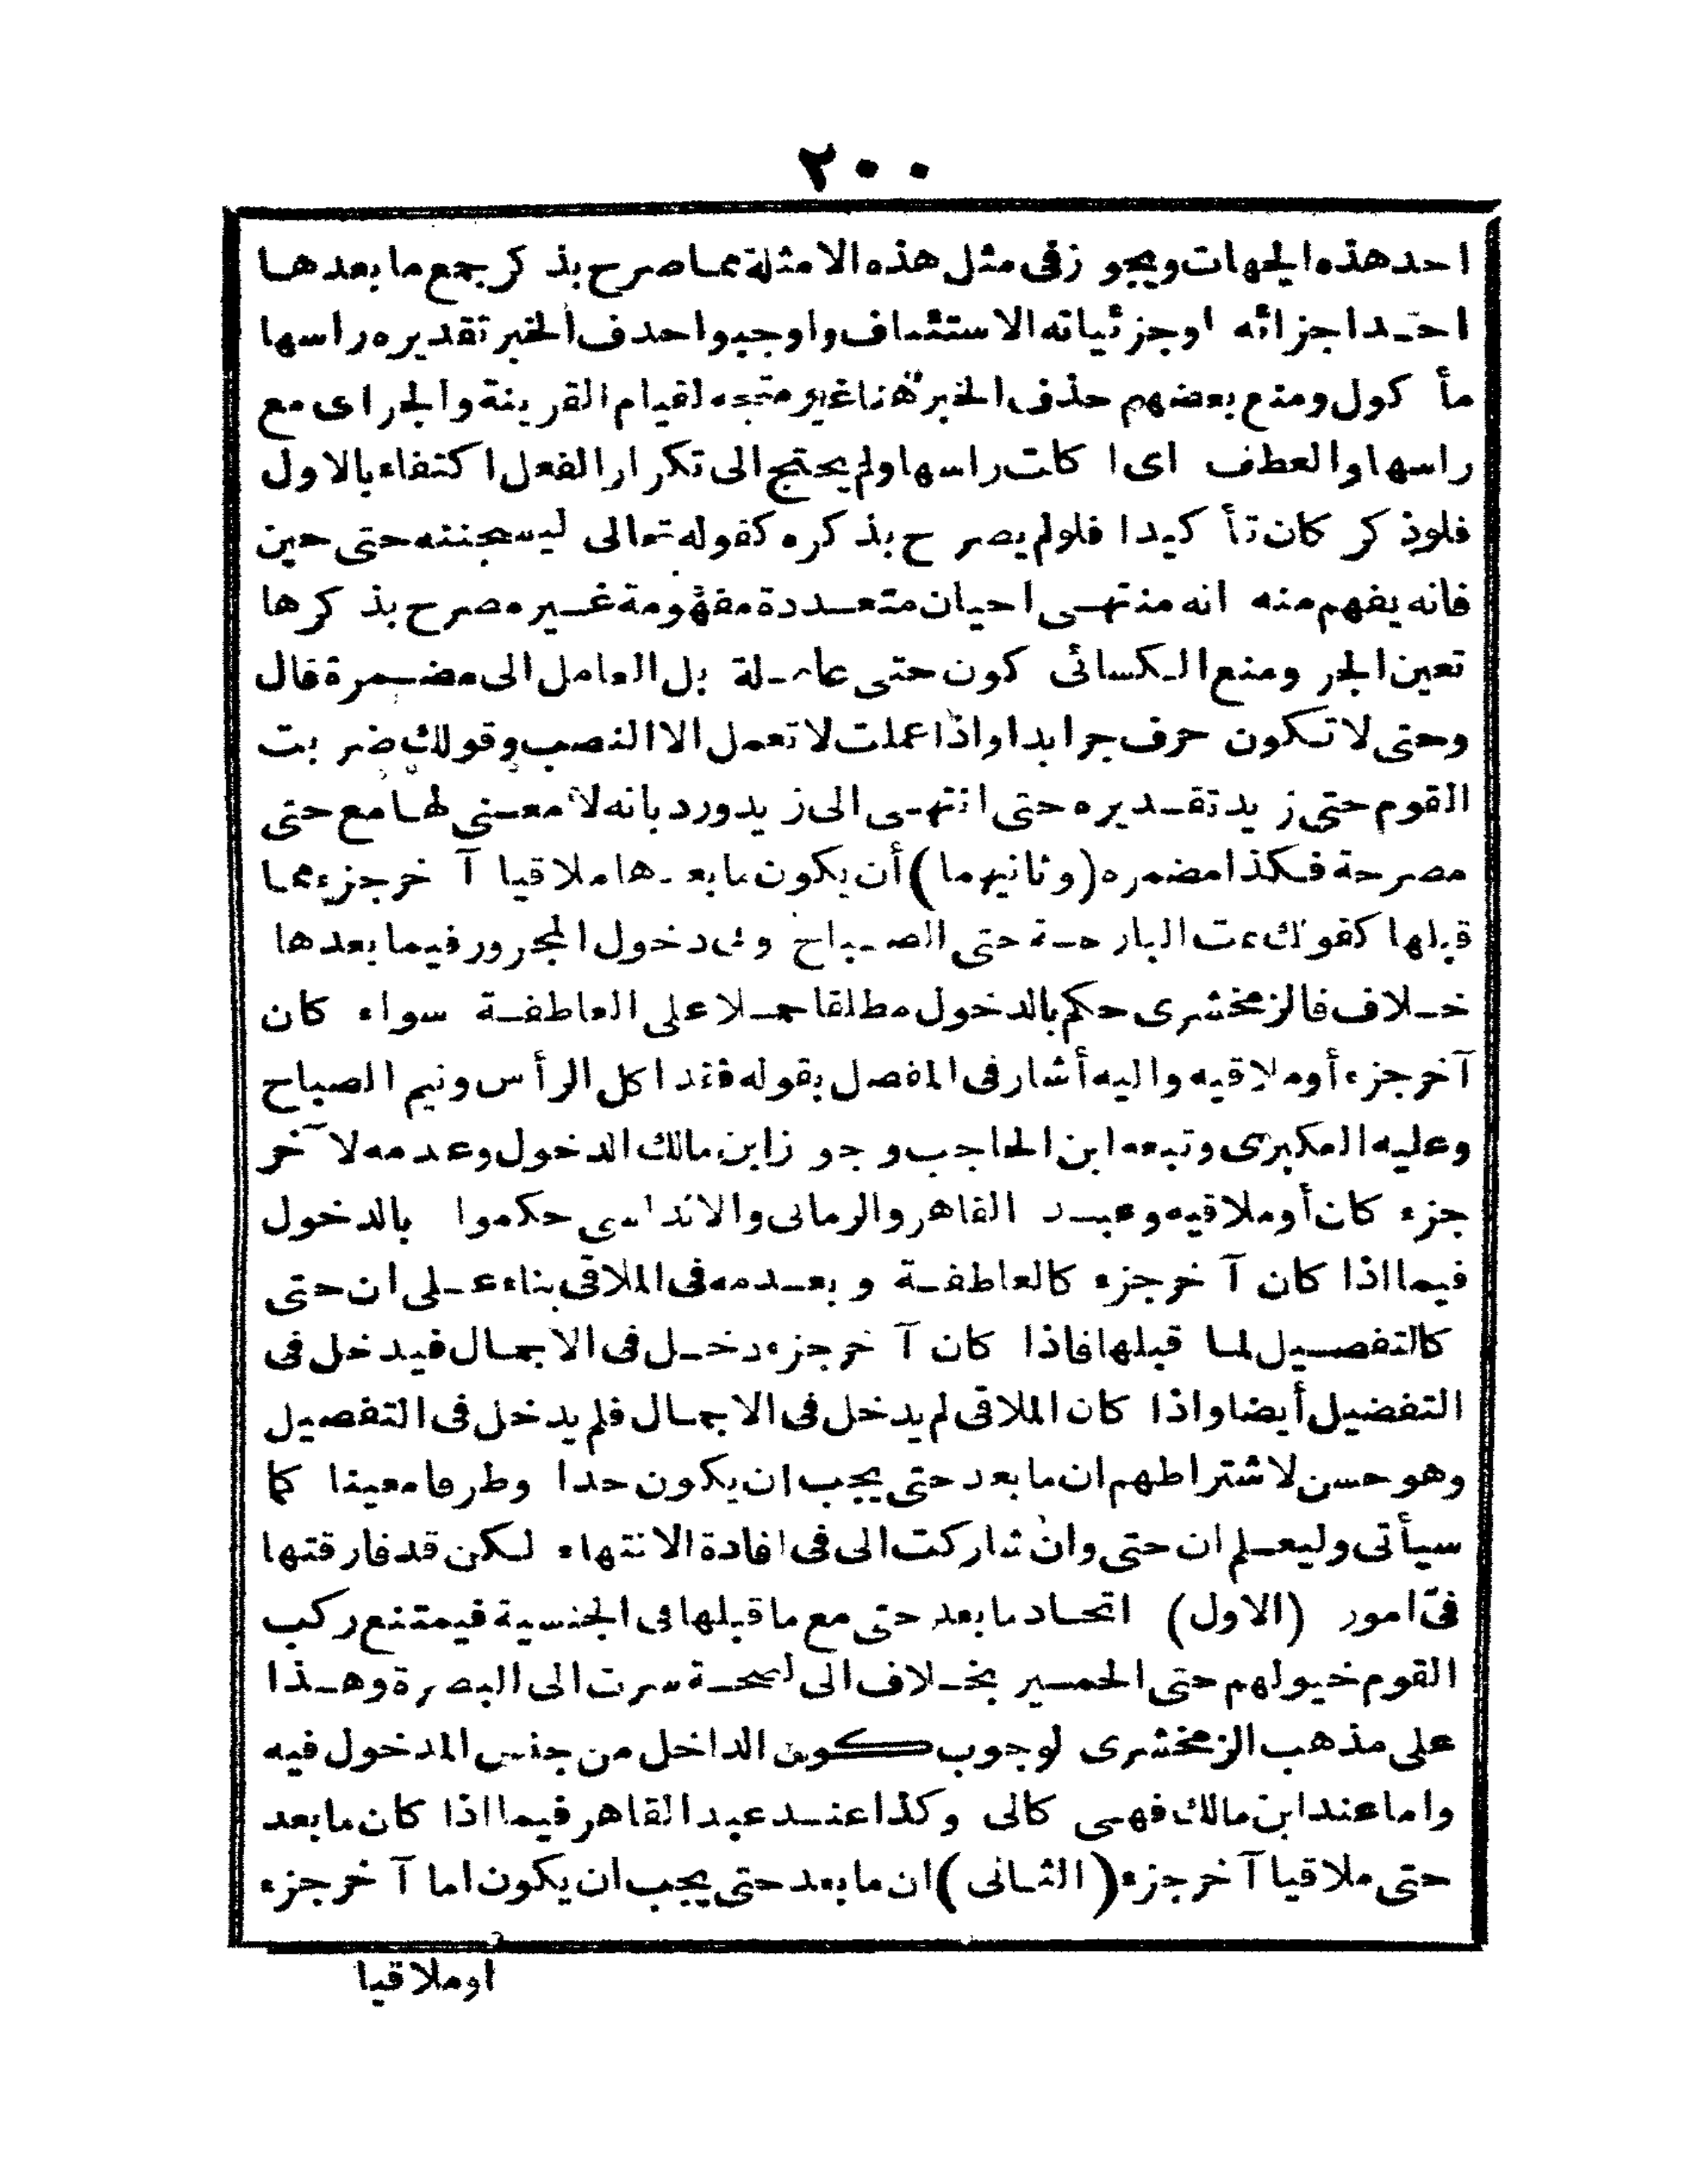 ٢٠٠
احد هذه الجهات ويجوز فى مثل هذه الامثلة مما صرح بذكر جمع ما بعدها
احد اجزائه اوجزئياته الاستئناف واوجبوا حدف الخبر تقديره راسها
مأكول ومنع بعضهم حذف الخبر هنا غير متجه لقيام القرينة والجراى مع
راسها والعطف اى اكلت راسها ولم يحتج الى تكرار الفعل اكتفاء بالاول
فلوذكر كان تأكيدا فلولم يصرح بذكره كقوله تعالى ليسجننه حتى حين
فانه يفهم منه انه منتهى احيان متعددة مفهومة غير مصرح بذكرها
تعين الجر ومنع الكسائى كون حتى عاملة بل العامل الى مضمرة قال
وحتى لاتكون حرف جرابدا واذا عملت لا تعمل الا النصب وقولك ضربت
القوم حتى زيد تقديره حتى انتهى الى زيد ورد بانه لا معنى لها مع حتى
مصرحة فكذا مضمره (وثانيهما) أن يكون ما بعدها ملاقيا آخر جزء مما
قبلها كقولك نمت البارحة حتى الصباح وفى دخول المجرور فيما بعدها
خلاف فالزمخشرى حكم بالدخول مطلقا حملا على العاطفة سواء كان
آخر جزء أوملاقيه واليه أشار فى المفصل بقوله فقد اكل الرأس ونيم الصباح
وعليه العكبرى وتبعه ابن الحاجب وجوز ابن مالك الدخول وعدمه لآخر
جزء كان أوملاقيه وعبد القاهر والرمانى والاندلسى حكموا بالدخول
فيما اذا كان آخر جزء كالعاطفة وبعدمه فى الملاقى بناء على ان حتى
كالتفصيل لما قبلها فاذا كان آخر جزء دخل فى الاجمال فيدخل فى
التفضيل أيضا واذا كان الملاقى لم يدخل فى الاجمال فلم يدخل فى التفصيل
وهو حسن لاشتراطهم ان ما بعد حتى يجب ان يكون حدا وطرفا معينا كما
سيأتى وليعلم ان حتى وان شاركت الى فى افادة الانتهاء لكن قد فارقتها
فى امور (الاول) اتحاد ما بعد حتى مع ما قبلها فى الجنسية فيمتنع ركب
القوم خيولهم حتى الحمير بخلاف الى لصحة سرت الى البصرة وهذا
على مذهب الزمخشرى لوجوب كون الداخل من جنس المدخول فيه
واما عند ابن مالك فهى كالى وكذا عند عبد القاهر فيما اذا كان ما بعد
حتى ملاقيا آخر جزء (الثانى) ان ما بعد حتى يجب ان يكون اما آخر جزء
اوملاقيا